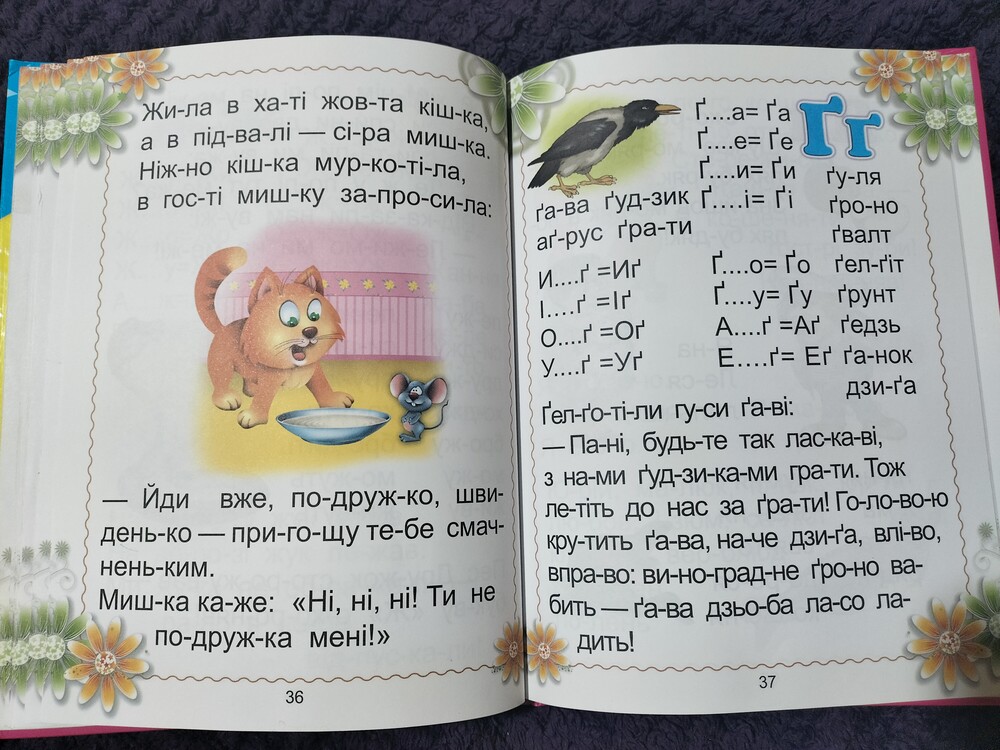 Жи-ла в ха-ті жов-та кіш-ка,
а в під-ва-лі — сі-ра миш-ка.
Ніж-но кіш-ка мур-ко-ті-ла,
в гос-ті миш-ку за-про-си-ла:
— Йди вже, по-друж-ко, шви-
день-ко — при-го-щу те-бе смач-
нень-ким.
Миш-ка ка-же: «Ні, ні, ні! Ти не
по-друж-ка мені!»
36
Ґ....а= Ґа
Ґ....е= Ґе
Ґ....и= Ґи
Ґ....і= Ґі
Ґґ
ґа-ва ґуд-зик
аґ-рус ґра-ти
ґу-ля
ґро-но
ґвалт
И....ґ =Иґ Ґ....о= Ґо ґел-ґіт
І....ґ =Іґ Ґ....у= Ґу ґрунт
О....ґ =Оґ А....ґ =Аґ ґедзь
У....ґ =Уґ Е....ґ= Еґ ґа-нок
дзи-ґа
Ґел-ґо-ті-ли гу-си ґа-ві:
— Па-ні, будь-те так лас-ка-ві,
з на-ми ґуд-зи-ка-ми гра-ти. Тож
ле-тіть до нас за ґра-ти! Го-ло-во-ю
кру-тить ґа-ва, на-че дзи-ґа, влі-во,
впра-во: ви-но-град-не ґро-но ва-
бить — ґа-ва дзьо-ба ла-со ла-
дить!
37